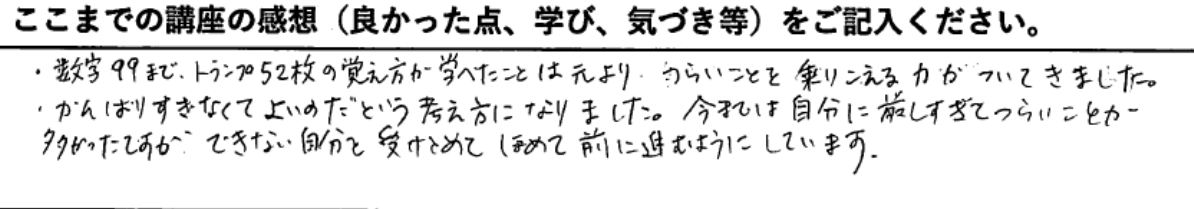 ここまでの講座の感想（良かった点、学び、気づき等）をご記入ください。
・数字99まで、トランプ52枚の覚え方が学べたことは元より、つらいことを乗りこえる力がついてきました。
・がんばりすぎなくてよいのだという考え方になりました。今までは自分に厳しすぎてつらいことが
多かったですが、できない自分を受けとめてほめて前に進むようにしています。